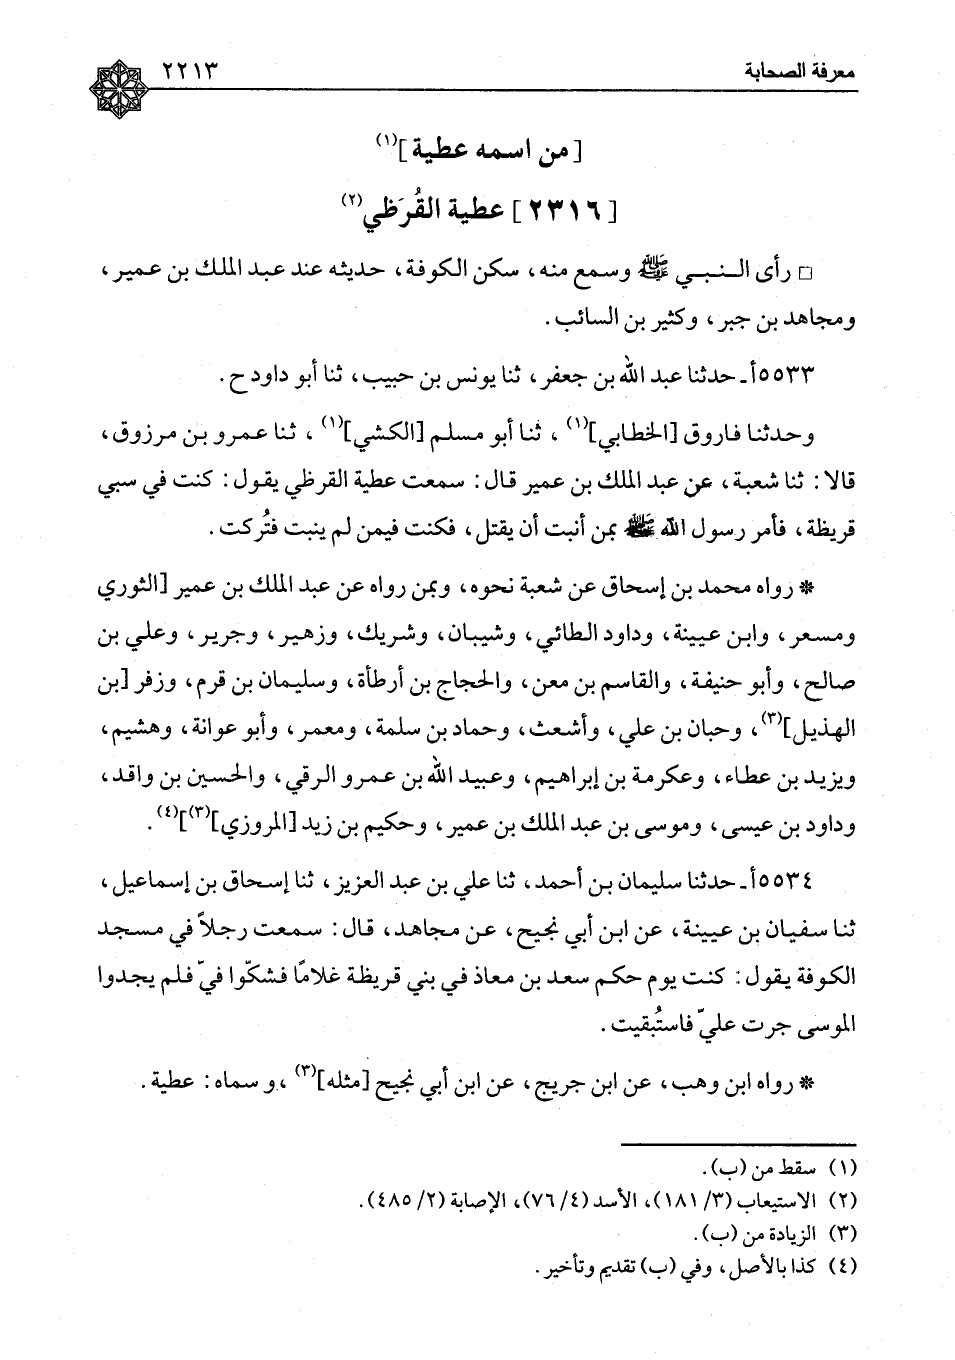 معرفة الصحابة ٢٢١٣
[من اسمه عطية](١)
[٢٣١٦] عطية القُرَظي(٢)
□ رأى النبي ﷺ وسمع منه، سكن الكوفة، حديثه عند عبد الملك بن عمير،
ومجاهد بن جبر، وكثير بن السائب.
٥٥٣٣أ - حدثنا عبد الله بن جعفر، ثنا يونس بن حبيب، ثنا أبو داود ح.
وحدثنا فاروق [الخطابي](١)، ثنا أبو مسلم [الكشي](١)، ثنا عمرو بن مرزوق،
قالا: ثنا شعبة، عن عبد الملك بن عمير قال: سمعت عطية القرظي يقول: كنت في سبي
قريظة، فأمر رسول الله ﷺ بمن أنبت أن يقتل، فكنت فيمن لم ينبت فتُركت.
* رواه محمد بن إسحاق عن شعبة نحوه، وبمن رواه عن عبد الملك بن عمير [الثوري
ومسعر، وابن عيينة، وداود الطائي، وشيبان، وشريك، وزهير، وجرير، وعلي بن
صالح، وأبو حنيفة، والقاسم بن معن، والحجاج بن أرطأة، وسليمان بن قرم، وزفر [بن
الهذيل](٣)، وحبان بن علي، وأشعث، وحماد بن سلمة، ومعمر، وأبو عوانة، وهشيم،
ويزيد بن عطاء، وعكرمة بن إبراهيم، وعبيد الله بن عمرو الرقي، والحسين بن واقد،
وداود بن عيسى، وموسى بن عبد الملك بن عمير، وحكيم بن زيد [المروزي](٣)](٤).
٥٥٣٤أ - حدثنا سليمان بن أحمد، ثنا علي بن عبد العزيز، ثنا إسحاق بن إسماعيل،
ثنا سفيان بن عيينة، عن ابن أبي نجيح، عن مجاهد، قال: سمعت رجلاً في مسجد
الكوفة يقول: كنت يوم حكم سعد بن معاذ في بني قريظة غلامًا فشكّوا فيّ فلم يجدوا
الموسى جرت عليّ فاستُبقيت.
* رواه ابن وهب، عن ابن جريج، عن ابن أبي نجيح [مثله](٣)، و سماه: عطية.
(١) سقط من (ب).
(٢) الاستيعاب (٣/ ١٨١)، الأسد (٤/ ٧٦)، الإصابة (٢/ ٤٨٥).
(٣) الزيادة من (ب).
(٤) كذا بالأصل، وفي (ب) تقديم وتأخير.